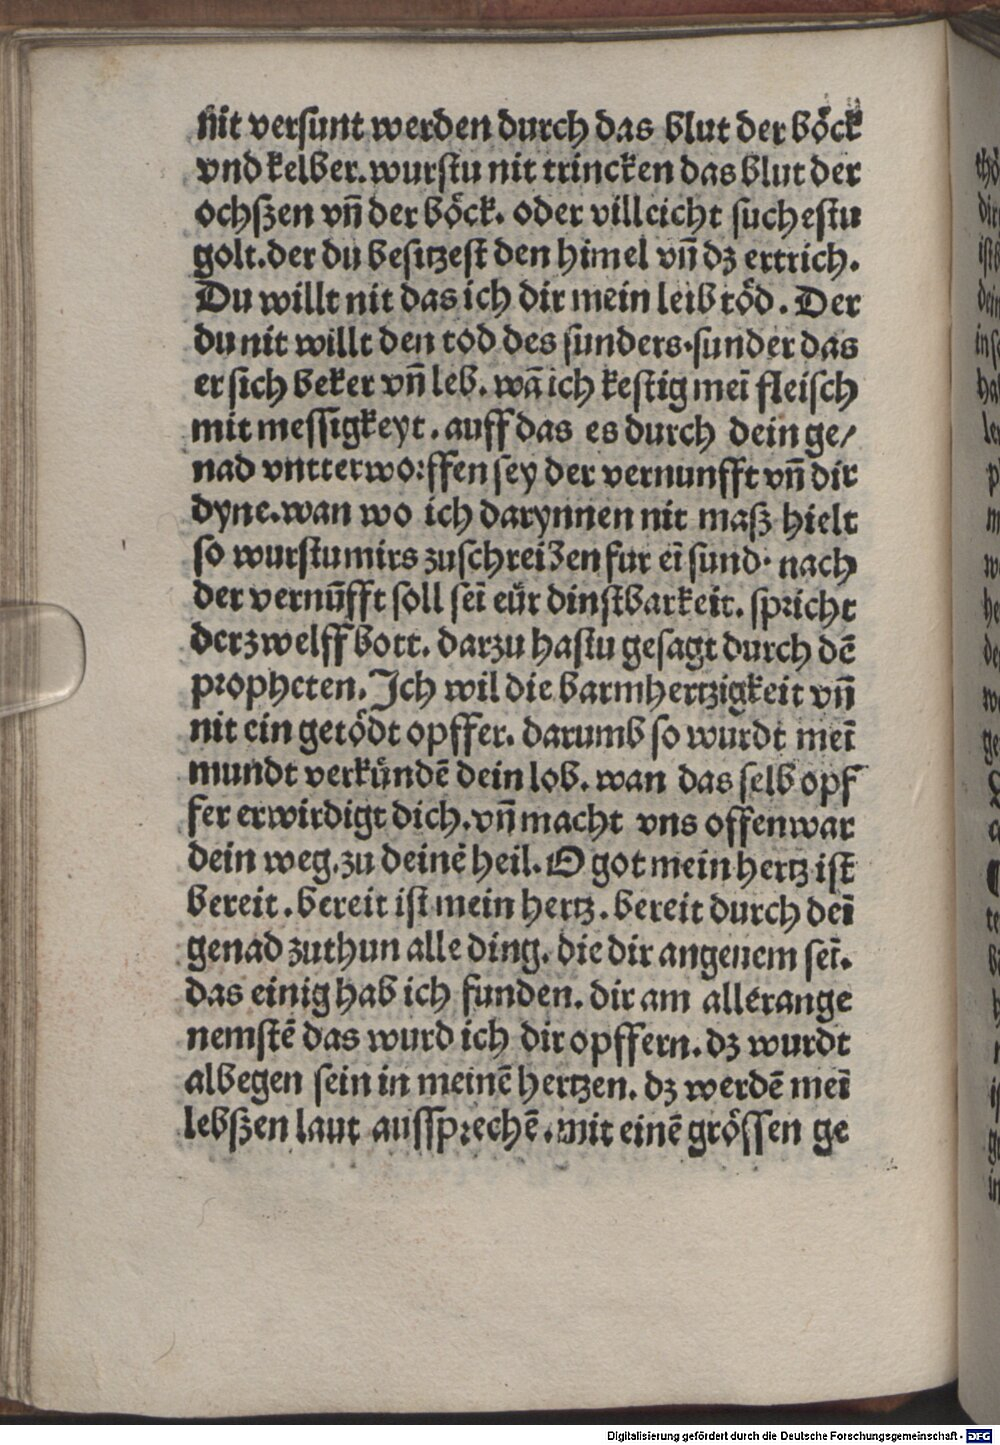 nit versunt werden durch das blut der böck
vnd kelber. wurstu nit trincken das blut der
ochszen vn̄ der böck. oder villeicht suchestu
golt. der du besitzest den himel vn̄ dz ertrich.
Du willt nit das ich dir mein leib töd. Der
du nit willt den tod des sunders. sunder das
er sich beker vn̄ leb. wā ich kestig meī fleisch
mit messigkeyt. auff das es durch dein ge/
nad vntterworffen sey der vernunfft vn̄ dir
dyne. wan wo ich darynnen nit masz hielt
so wurstu mirs zuschreiben fur eī sund. nach
der vernūfft soll seī eür dinstbarkeit. spricht
der zwelffbott. darzu hastu gesagt durch dē
propheten. Ich wil die barmhertzigkeit vn̄
nit ein getödt opffer. darumb so wurdt meī
mundt verkündē dein lob. wan das selb opf
fer erwirdigt dich. vn̄ macht vns offenwar
dein weg. zu deinē heil. O got mein hertz ist
bereit. bereit ist mein hertz. bereit durch deī
genad zuthun alle ding. die dir angenem seī.
das einig hab ich funden. dir am allerange
nemstē das wurd ich dir opffern. dz wurdt
albegen sein in meinē hertzen. dz werdē meī
lebszen laut aussprechē. mit einē grössen ge
Digitalisierung gefördert durch die Deutsche Forschungsgemeinschaft - DFG